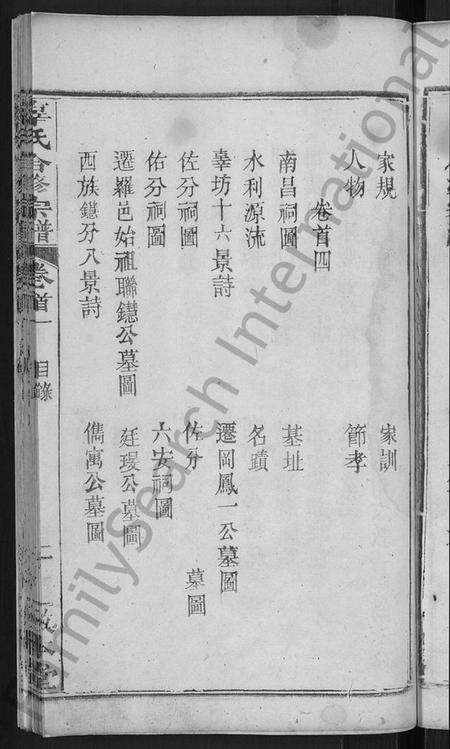 家規　家訓
人物　節孝
卷首四
南昌祠圖　墓址
水利源流　名蹟
辜坊十六景詩　遷岡鳳一公墓圖
佐分祠圖　佐分　墓圖
佑分祠圖　六安祠圖
遷羅邑始祖聯鑣公墓圖　廷瑷公墓圖
西族鑣分八景詩　儁寓公墓圖
辜氏合修宗譜　卷首一　目錄　二
FamilySearch International